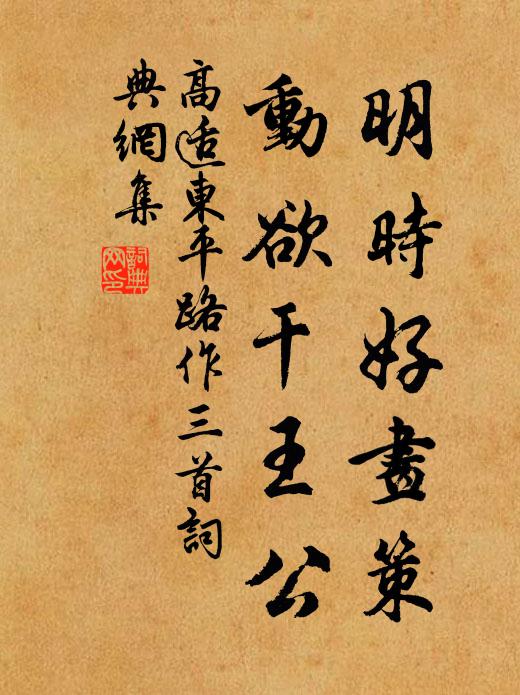 明時好畫策
動欲干王公
高适東平路作三首詞
典網集
詞典網印